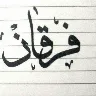 فرقان